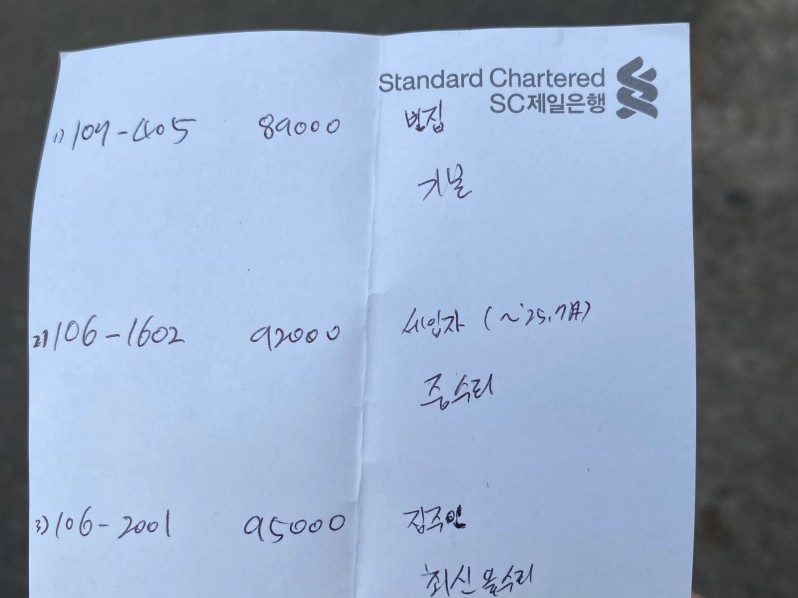 Standard Chartered
SC제일은행
1) 109-405 89000 빈집
기본
2) 106-1602 92000 세입자 (~'25.7月)
중수리
3) 106-2001 95000 집주인
최신 올수리